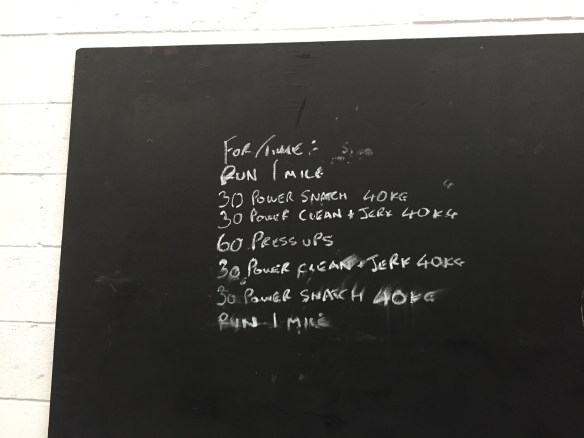 FOR/TIME:-
RUN 1 MILE
30 POWER SNATCH 40KG
30 POWER CLEAN + JERK 40KG
60 PRESS UPS
30 POWER CLEAN + JERK 40KG
30 POWER SNATCH 40KG
RUN 1 MILE